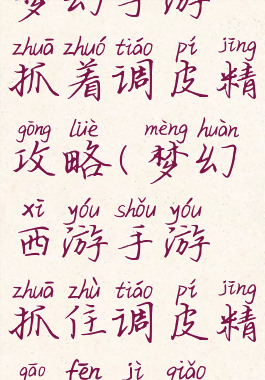 梦幻手游
zhuā zhuó tiáo pí jīng
抓着调皮精
gōng lüè mèng huàn
攻略(梦幻
xī yóu shǒu yóu
西游手游
zhuā zhù tiáo pí jīng
抓住调皮精
gāo fēn jì qiǎo